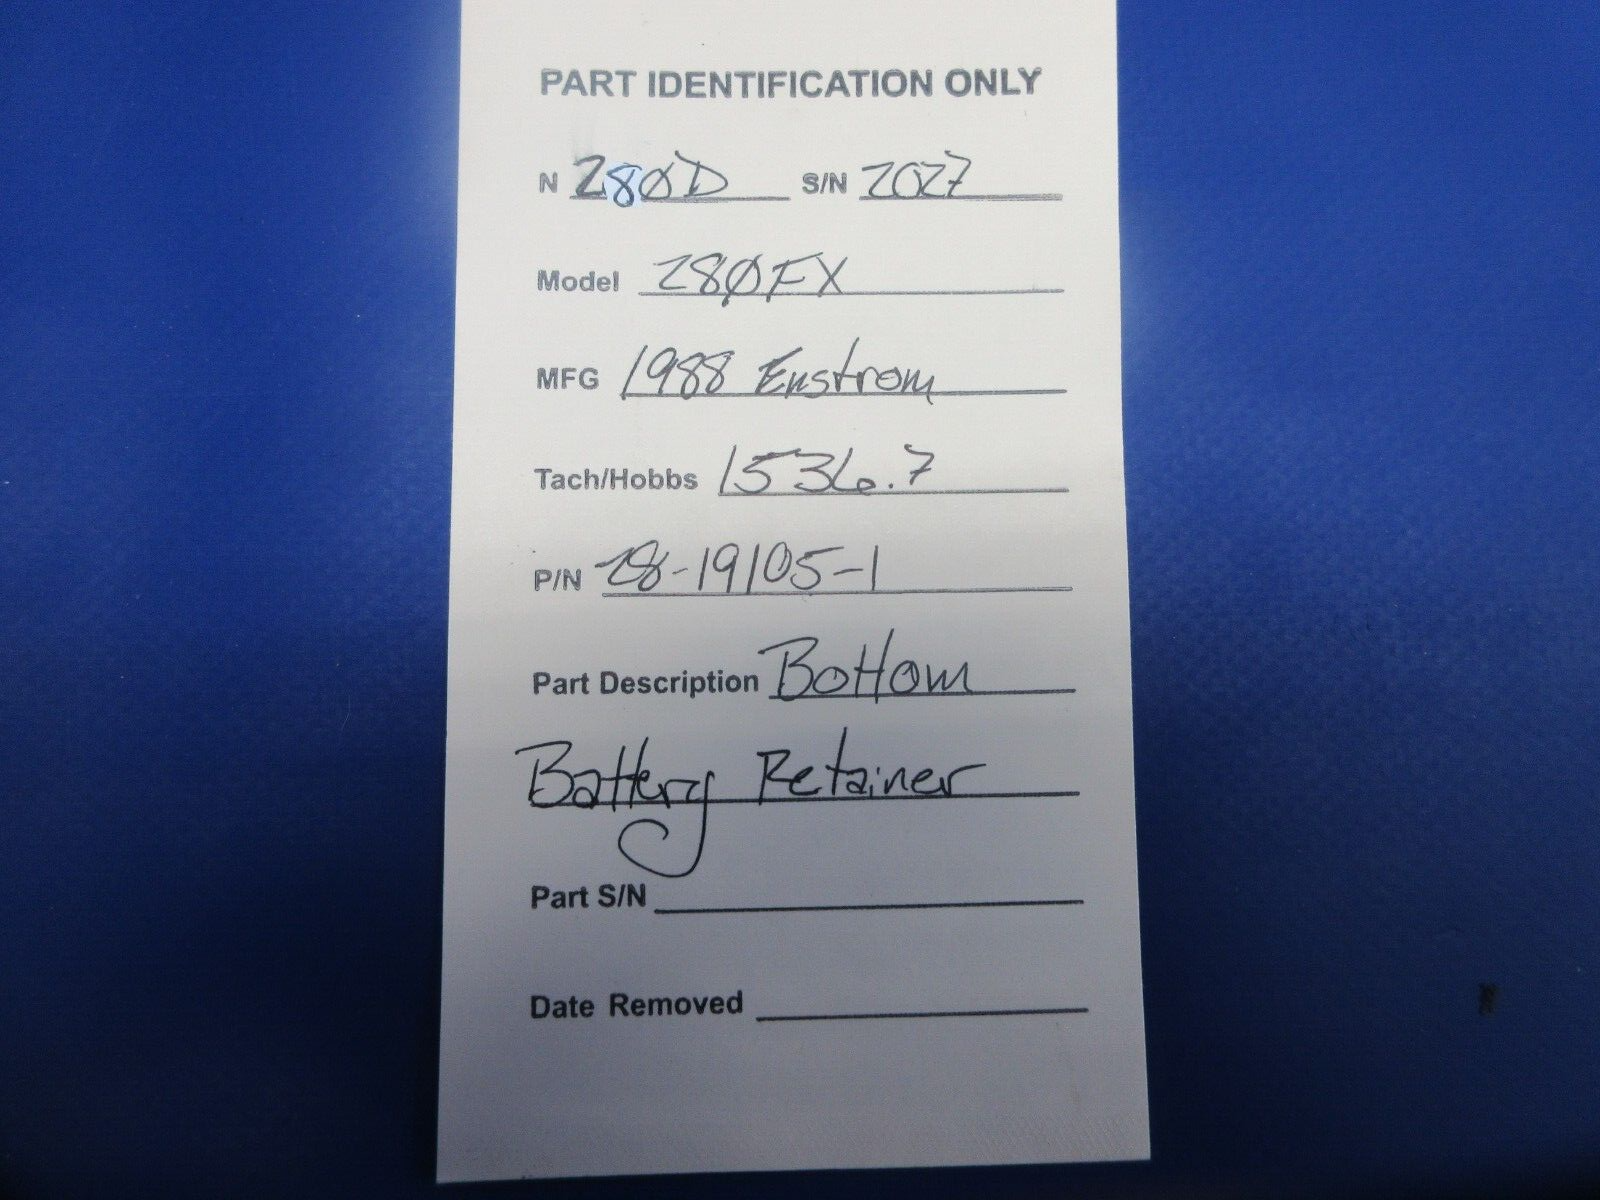 PART IDENTIFICATION ONLY
N 280D S/N 2027
Model 280FX
MFG 1988 Enstrom
Tach/Hobbs 1536.7
P/N 28-19105-1
Part Description Bottom
Battery Retainer
Part S/N
Date Removed